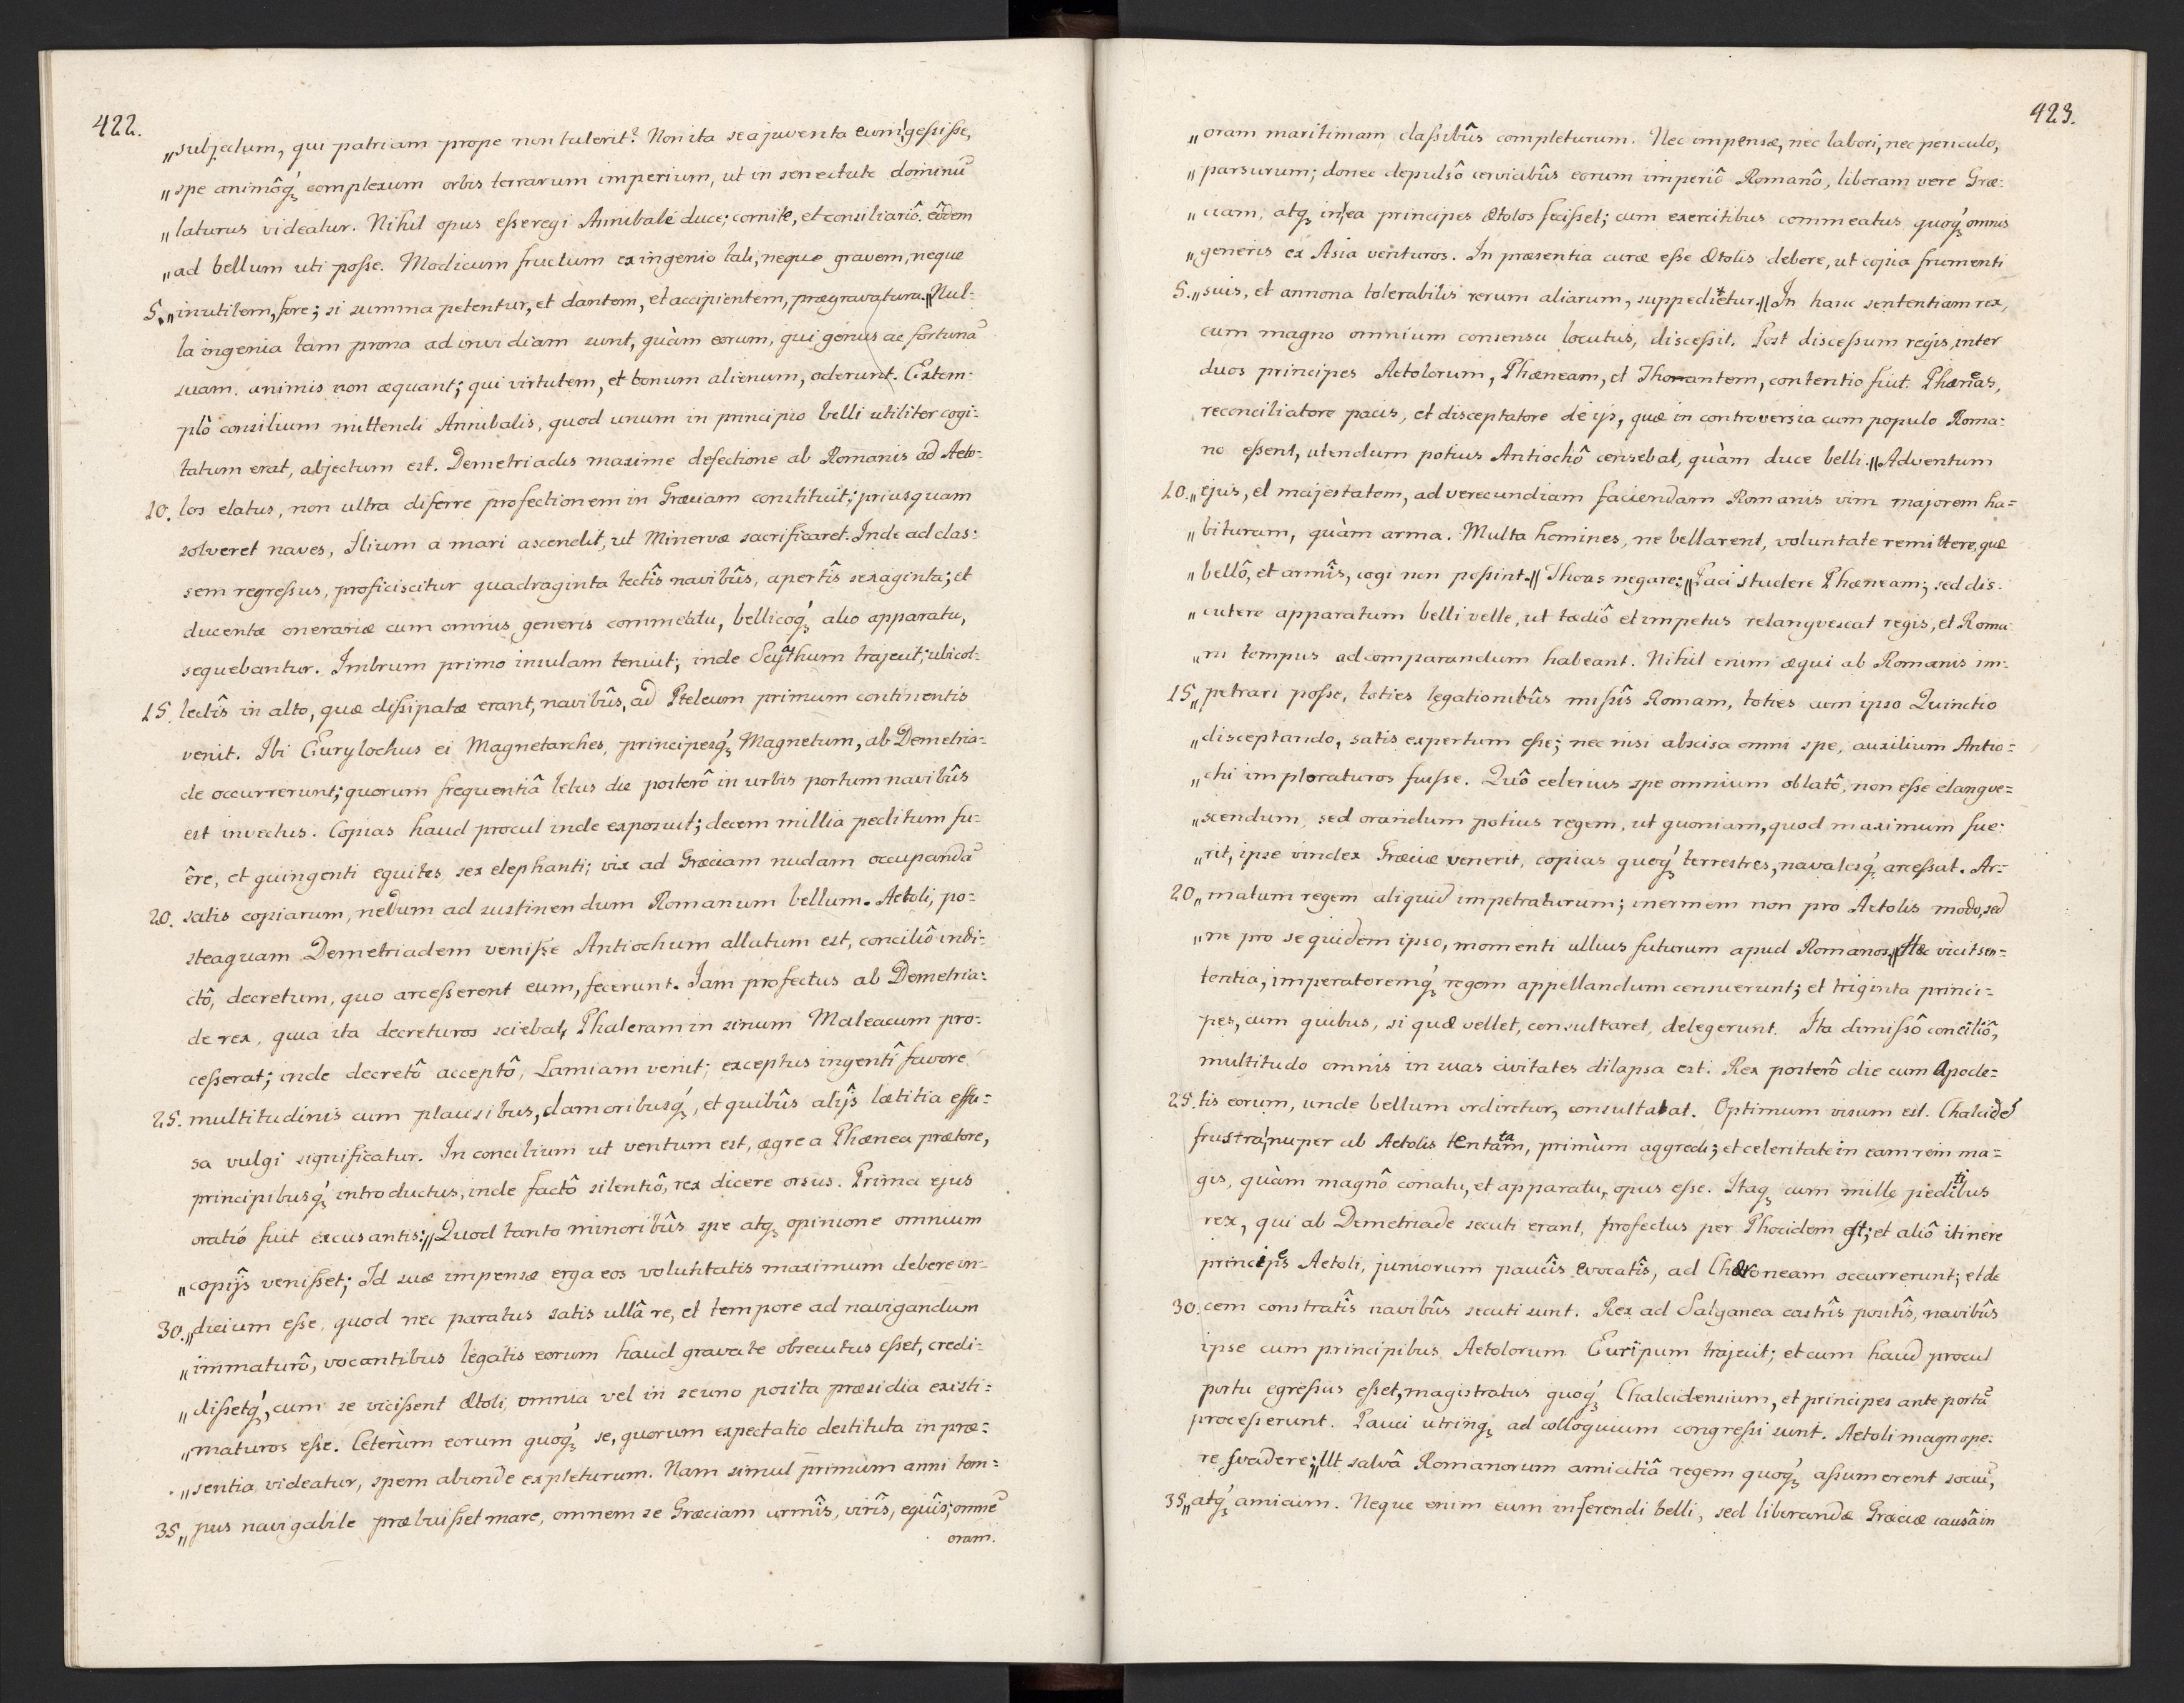 422.
„subjectum, qui patriam prope non tulerit? Non ita se a juventa eum gessisse,
„spe animôq́ꝫ complexum orbis terrarum imperium, ut in senectute dominũ
„laturus videatur. Nihil opus esse regi Annibale duce; comite, et consiliariô. eôdem
„ad bellum uti posse. Modicum fructum ex ingenio tali, neque gravem, neque
5. „inutilem, fore; si summa petentur, et dantem, et accipientem, prægravatura.„ Nul-
la ingenia tam prona ad invidiam sunt, quàm eorum, qui genus ac fortunã
suam. animis non æquant; qui virtutem, et bonum alienum, oderunt. Extem-
plô consilium mittendi Annibalis, quod unum in principio belli utiliter cogi-
tatum erat, abjectum est. Demetriadis maxime defectione ab Romanis ad Aeto-
10. los elatus, non ultra diferre profectionem in Græciam constituit; priusquam
solveret naves, Ilium a mari ascendit, ut Minervæ sacrificaret. Inde ad clas-
sem regressus, proficiscitur quadraginta tectîs navibûs, apertîs sexaginta; et
ducentæ onerariæ cum omnis generis commeatu, bellicoq́ꝫ alio apparatu,
sequebantur. Imbrum primo insulam tenuit; inde Scyathum trajecit; ubi col-
15. lectîs in alto, quæ dissipatæ erant, navibûs, ad Pteleum primum continentis
venit. Ibi Eurylochus ei Magnetarches, principesq́ꝫ Magnetum, ab Demetria-
de occurrerunt; quorum frequentiâ letus die posterô in urbis portum navibûs
est invectus. Copias haud procul inde exposuit; decem millia peditum fu-
êre, et quingenti equites, sex elephanti; vix ad Græciam nudam occupandã
20. satis copiarum, nedum ad sustinendum Romanum bellum. Aetoli, po-
steaquam Demetriadem venisse Antiochum allatum est, conciliô indi-
ctô, decretum, quo arcesserent eum, fecerunt. Jam profectus ab Demetria-
de rex, quia ita decreturos sciebat, Phaleram in sinum Maleacum pro-
cesserat; inde decretô acceptô, Lamiam venit; exceptus ingentî favore
25. multitudinis cum plausibus, clamoribusq́ꝫ, et quibûs alijs lætitia effu-
sa vulgi significatur. In concilium ut ventum est, ægre a Phænea prætore,
principibusq́ꝫ introductus, inde factô silentiô, rex dicere orsus. Prima ejus
oratio fuit excusantis:„Quod tanto minoribûs spe atqꝫ opinione omnium
„copijs venisset; Id suæ impensæ erga eos voluntatis maximum debere in-
30. „dicium esse, quod nec paratus satis ullâ re, et tempore ad navigandum
„immaturô, vocantibus legatis eorum haud gravate obsecutus esset, credi-
„dissetq́ꝫ, cum se vicissent Ætoli, omnia vel in se uno posita præsidia existi-
„maturos esse. Ceterùm eorum quoq́ꝫ se, quorum expectatio destituta in præ-
„sentia videatur, spem abunde expleturum. Nam simul primùm anni tem-
35. „pus navigabile præbuisset mare, omnem se Græciam armîs, virîs, equîs; omnẽ
oram.
423.
„oram maritimam classibûs completurum. Nec impensæ, nec labori, nec periculo,
„parsurum; donec depulsô cervicibûs eorum imperiô Romanô, liberam vere Græ-
„ciam, atqꝫ in ea principes Ætolos fecisset; cum exercitibus commeatus quoq́ꝫ omnis
„generis ex Asia venturos. In præsentia curæ esse Ætolis debere, ut copia frumenti
5. „suis, et annona tolerabilis rerum aliarum, suppeditetur.„ In hanc sententiam rex,
cum magno omnium consensu locutus, discessit. Post discessum regis, inter
duos principes Aetolorum, Phæneam, et Thoantem, contentio fuit. Phæneas,
reconciliatore pacis, et disceptatore de ijs, quæ in controversia cum populo Roma-
no essent, utendum potius Antiochô censebat, quàm duce belli.„ Adventum
10. „ejus, et majestatem, ad verecundiam faciendam Romanis vim majorem ha-
„bituram, quàm arma. Multa homines, ne bellarent, voluntate remittere, quæ
„bellô, et armîs, cogi non possint.„ Thoas negare:„Paci studere Phæneam; sed dis-
„cutere apparatum belli velle, ut tædiô et impetus relangvescat regis, et Roma
„ni tempus ad comparandum habeant. Nihil enim æqui ab Romanis im-
15. „petrari posse, toties legationibûs missîs Romam, toties cum ipso Quinctio
„disceptando, satis expertum esse; nec nisi abscisa omni spe, auxilium Antio-
„chi imploraturos fuisse. Quô celerius spe omnium oblatô, non esse elangve-
„scendum, sed orandum potius regem, ut quoniam, quod maximum fue-
„rit, ipse vindex Græciæ venerit, copias quoq́ꝫ terrestres, navalesq́ꝫ arcessat. Ar-
20. „matum regem aliquid impetraturum; inermem non pro Aetolis modo, sed
„ne pro se quidem ipso, momenti ullius futurum apud Romanos.„ Hæc vicit sen-
tentia, imperatoremq́ꝫ regem appellandum censuerunt; et triginta princi-
pes, cum quibus, si quæ vellet, consultaret, delegerunt. Ita dimissô conciliô,
multitudo omnis in suas civitates dilapsa est. Rex posterô die cum Apocle-
25. tis eorum, unde bellum ordiretur, consultabat. Optimum visum est. Chalcidẽ
frustrà nuper ab Aetolis tentatam, primùm aggredi; et celeritate in eam rem ma-
gis, quàm magnô conatu, et apparatu, opus esse. Itaqꝫ cum mille peditibus
rex, qui ab Demetriade secuti erant, profectus per Phocidem est; et aliô itinere
principes Aetoli, juniorum paucîs evocatîs, ad Chæroneam occurrerunt; et de
30. cem constratîs navibûs secuti sunt. Rex ad Salganea castrîs positîs, navibûs
ipse cum principibus Aetolorum Euripum trajecit; et cum haud procul
portu egressus esset, magistratus quoq́ꝫ Chalcidensium, et principes ante portã
processerunt. Pauci utrinqꝫ ad colloquium congressi sunt. Aetoli magnope-
re svadere;„Ut salvâ Romanorum amicitiâ regem quoq́ꝫ assumerent sociũ,
35. „atq́ꝫ amicum. Neque enim eum inferendi belli, sed liberandæ Græciæ causâ in